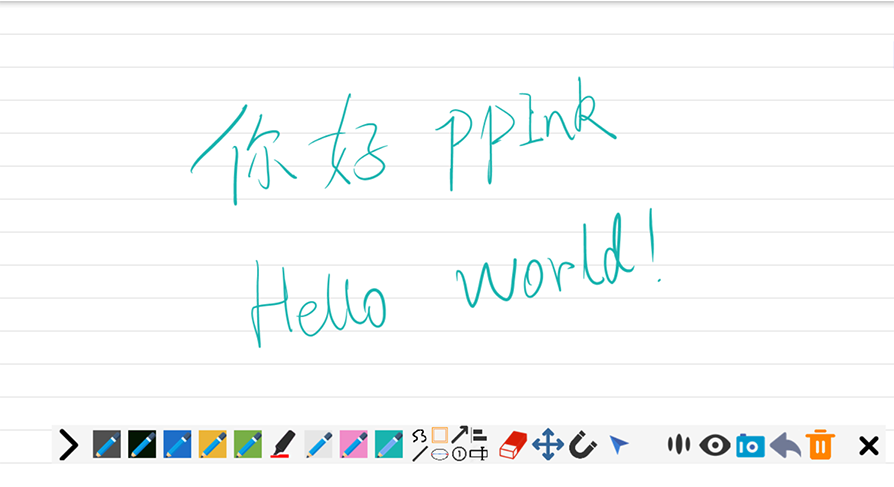 你好 ppInk
Hello World!